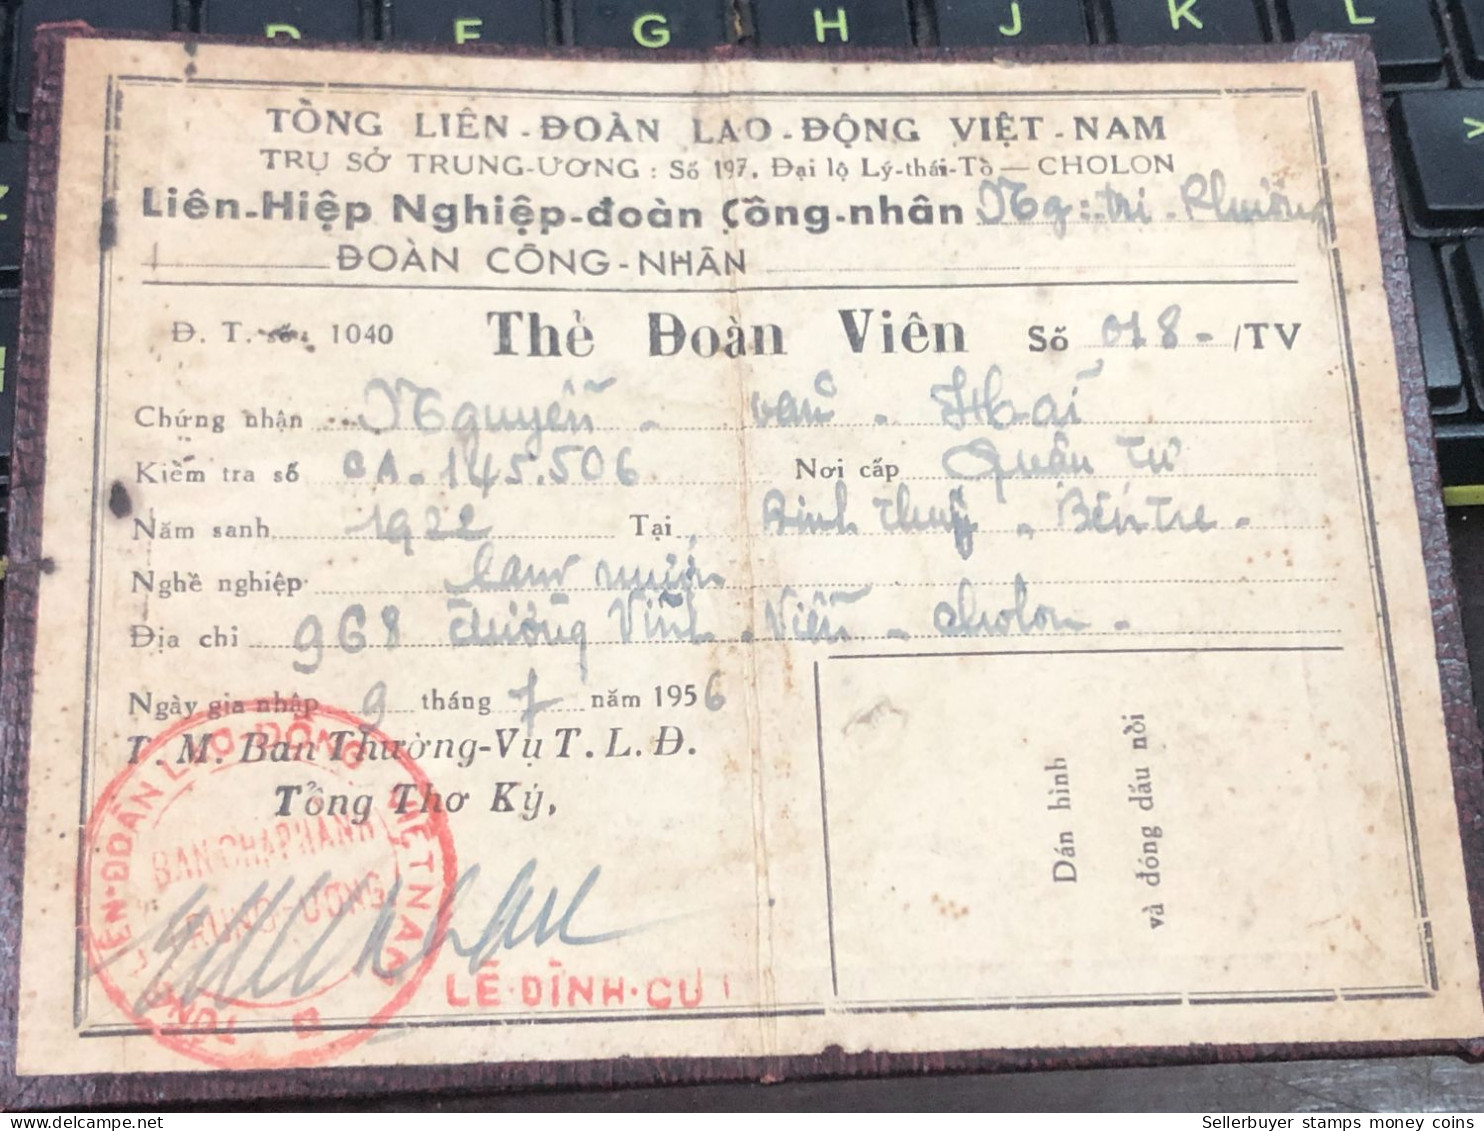 F G H J K L
TỔNG LIÊN-ĐOÀN LAO-ĐỘNG VIỆT-NAM
TRỤ SỞ TRUNG-ƯƠNG : Số 197, Đại lộ Lý-thái-Tổ — CHOLON
Liên-Hiệp Nghiệp-đoàn Công-nhân Ng: tri - Phương
ĐOÀN CÔNG-NHÂN
Đ. T. số: 1040 Thẻ Đoàn Viên Số 018 - /TV
Chứng nhận Nguyễn - văn - Hai
Kiểm tra số CA-145.506 Nơi cấp Quận Tư
Năm sanh 1922 Tại Bình Thuỷ - Bến Tre -
Nghề nghiệp
Địa chỉ 968 đường Vĩnh - Viễn - Cholon -
Ngày gia nhập 9 tháng 7 năm 1956
T. M. Ban Thường-Vụ T. L. Đ.
Tổng Thơ Ký,
TỔNG LIÊN-ĐOÀN LAO-ĐỘNG VIỆT NAM
BAN CHẤP HÀNH
TRUNG-ƯƠNG
LÊ-ĐÌNH-CƯ
Dán hình
và đóng dấu nổi
Sellerbuyer stamps money coins